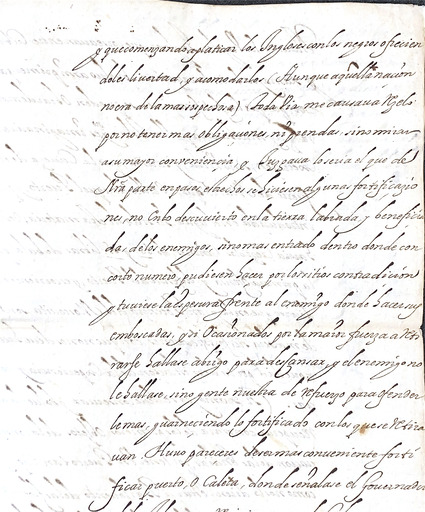 y que comenzando a platicar los Ingleses con los negros ofrecien
doles livertad, y acomodarlos (Aunque aquella nacion
no era de la mas sospechosa) Toda Via me causava Reçelo
por no tener mas obligaciones, ni prendas, sino mirar
a su mayor conveniencia, y Juzgava lo seria el que de
Nra parte en passos estrechos se hiciesen algunas fortificazio
nes, no en lo descuvierto en la tierra labrada, y beneficia
da, de los enemigos, sino mas entrado dentro donde con
corto numero, pudiesen hacer por los sitios contradicion
y tuviese la espesura frente al enemigo donde hacer sus
emboscadas, y si ocasionados por la maior fuerza a Reti
rarse hallase abrigo para descansar, y el enemigo no
le hallase, sino gente nuestra de Refuerzo para ofender
le mas, guarneciendo lo fortificado con los que se Retira
van Huvo pareceres de ser mas conveniente forti
ficar puerto, O Caleta, donde señalase el Governador